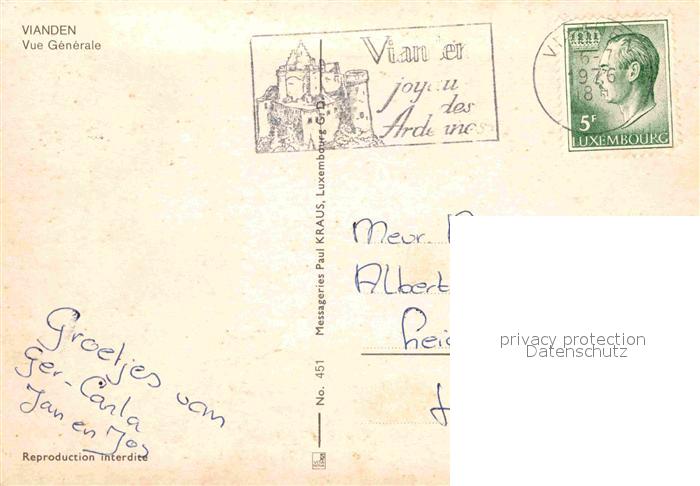 VIANDEN
Vue Générale
Vianden
joyau
des
Ardennes
VI
6-
1976
18
5F
LUXEMBOURG
No. 451 Messageries Paul KRAUS, Luxembourg G.D.
Mevr.
Albert
Leid
privacy protection
Datenschutz
Groetjes van
Ger-Carla
Jan en Joy
Reproduction interdite